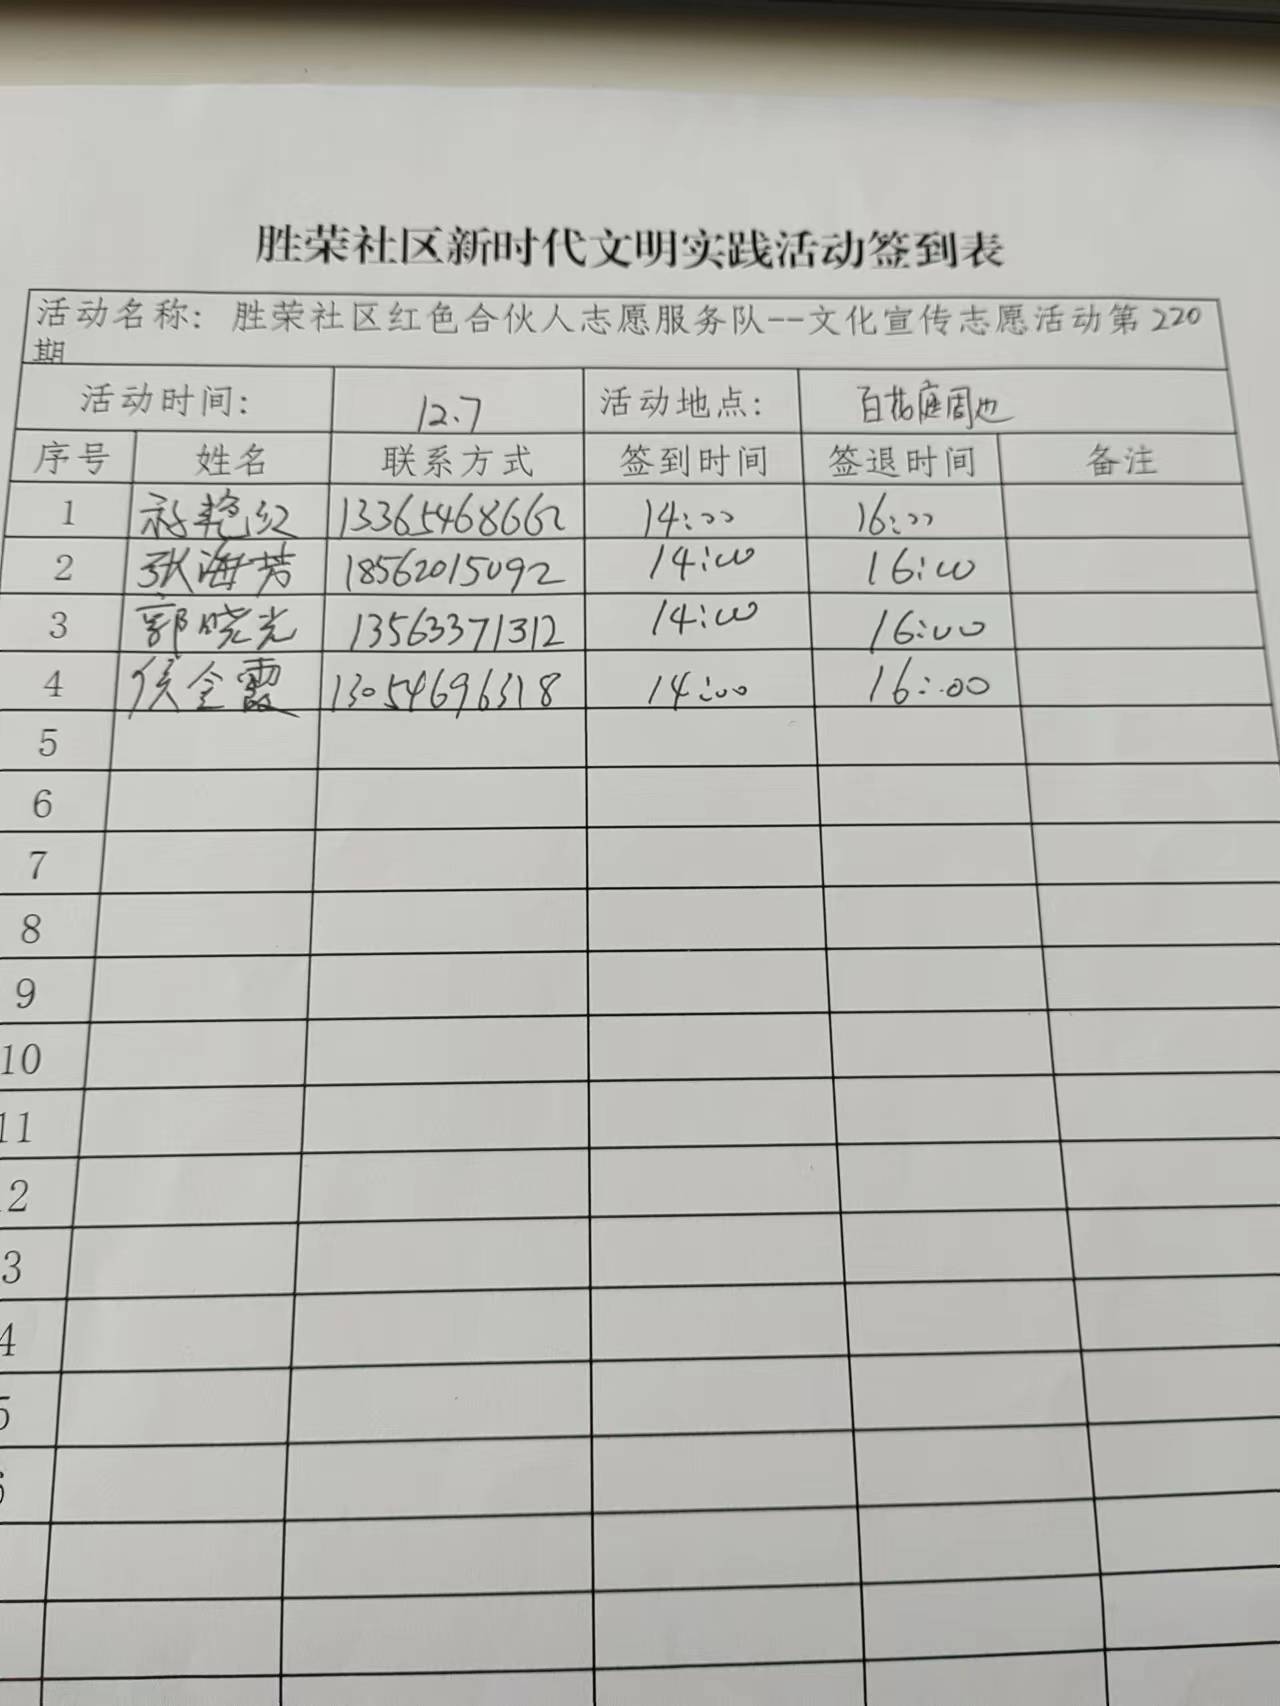 胜荣社区新时代文明实践活动签到表
活动名称：胜荣社区红色合伙人志愿服务队--文化宣传志愿活动第220
期
活动时间： 12.7 活动地点： 百花庭周边
序号 姓名 联系方式 签到时间 签退时间 备注
1 艳红 13365468662 14:00 16:00
2 张海芳 18562015092 14:00 16:00
3 郭晓光 13563371312 14:00 16:00
4 侯金霞 13054696318 14:00 16:00
5
6
7
8
9
10
11
2
3
4
5
6